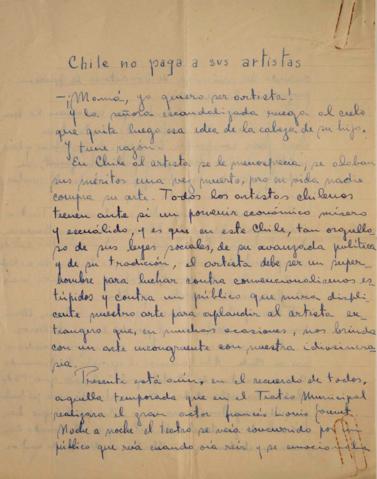 Chile no paga a sus artistas
—¡Mamá, yo quiero ser artista!
Y la señora escandalizada ruega al cielo
que quite luego esa idea de la cabeza de su hijo.
Y tiene razón.
En Chile al artista se le menosprecia, se alaban
sus méritos una vez muerto, pero en vida nadie
compra su arte. Todos los artistas chilenos
tienen ante sí un porvenir económico mísero
y escuálido, y es que en este Chile, tan orgullo-
so de sus leyes sociales, de su avanzada política
y de su tradición, el artista debe ser un super-
hombre para luchar contra convencionalismos es-
túpidos y contra un público que mira displi-
cente nuestro arte para aplaudir al artista ex-
tranjero que, en muchas ocasiones, nos brinda
con un arte incongruente con nuestra idiosincra-
sia.
Presente está aún, en el recuerdo de todos,
aquella temporada que en el Teatro Municipal
realizara el gran actor francés Louis Jouvet
Noche a noche el teatro se veía concurrido por un
público que reía cuando oía reír y se emocionaba